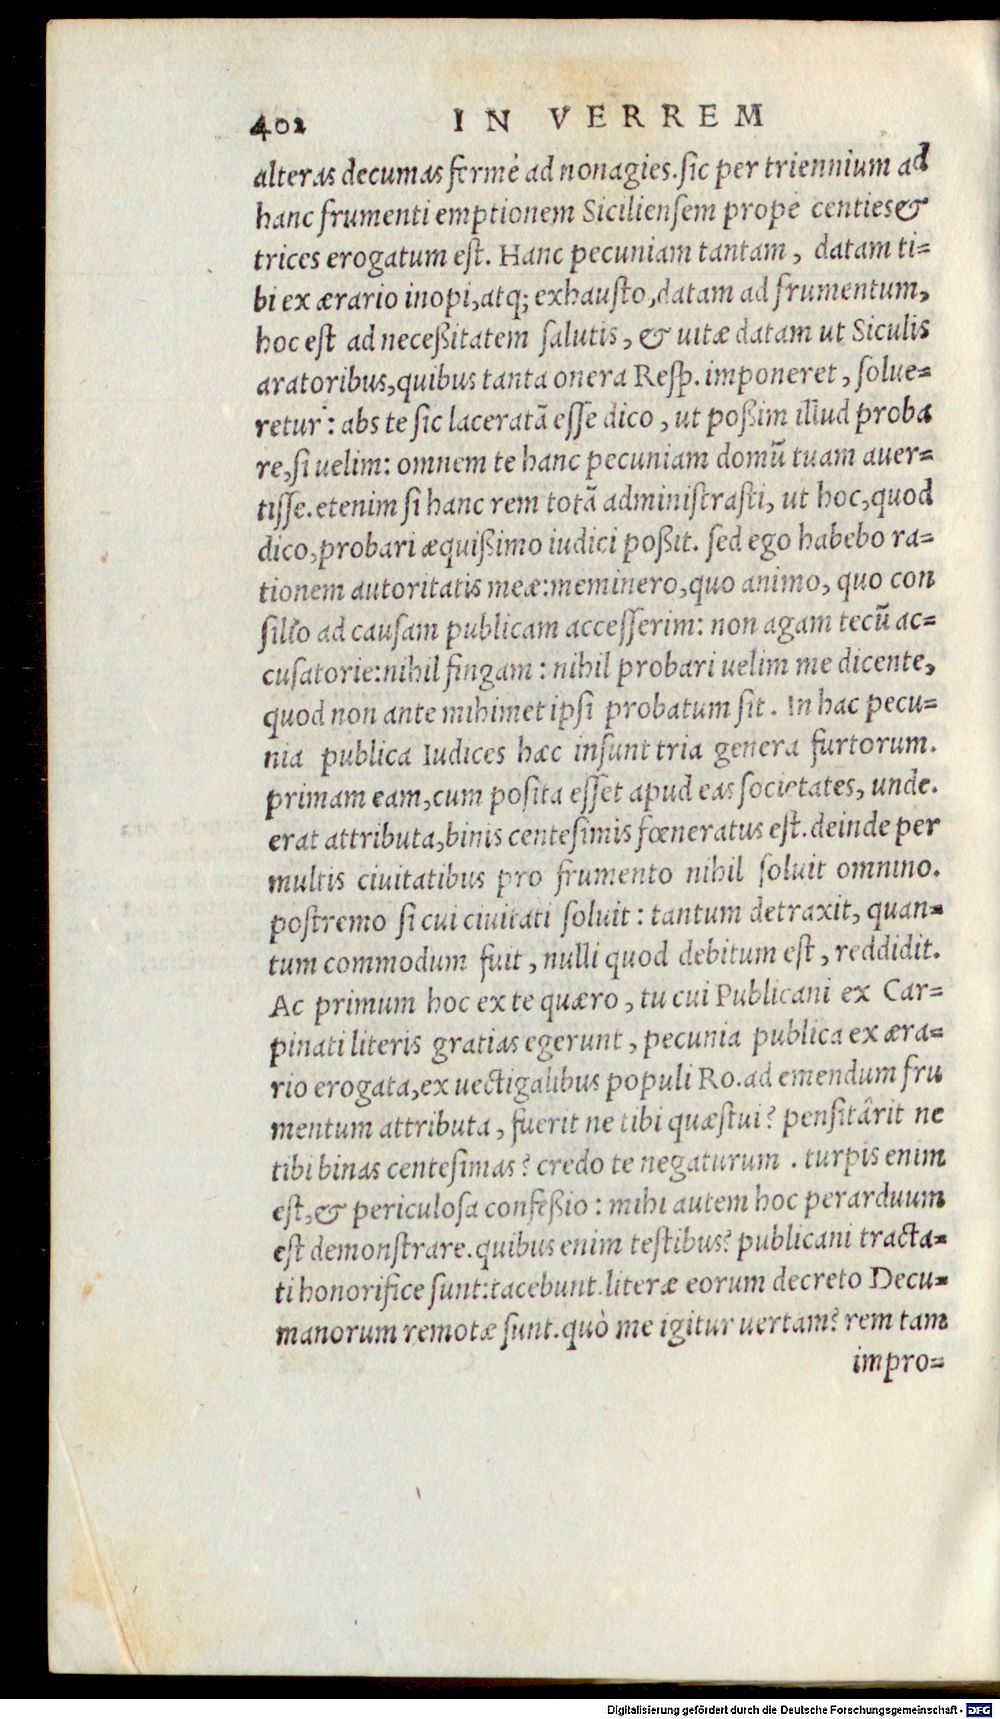 402 IN VERREM
alteras decumas fermè ad nonagies. sic per triennium ad
hanc frumenti emptionem Siciliensem prope centies &
trices erogatum est. Hanc pecuniam tantam, datam ti=
bi ex ærario inopi, atq; exhausto, datam ad frumentum,
hoc est ad neceßitatem salutis, & uitæ datam ut Siculis
aratoribus, quibus tanta onera Resp. imponeret, solue=
retur: abs te sic laceratã esse dico, ut poßim illud proba
re, si uelim: omnem te hanc pecuniam domũ tuam auer=
tisse. etenim si hanc rem totã administrasti, ut hoc, quod
dico, probari æquißimo iudici poßit. sed ego habebo ra=
tionem autoritatis meæ: meminero, quo animo, quo con
silio ad causam publicam accesserim: non agam tecũ ac=
cusatorie: nihil fingam: nihil probari uelim me dicente,
quod non ante mihimet ipsi probatum sit. In hac pecu=
nia publica Iudices hæc insunt tria genera furtorum.
primam eam, cum posita esset apud eas societates, unde.
erat attributa, binis centesimis fœneratus est. deinde per
multis ciuitatibus pro frumento nihil soluit omnino.
postremo si cui ciuitati soluit: tantum detraxit, quan=
tum commodum fuit, nulli quod debitum est, reddidit.
Ac primum hoc ex te quæro, tu cui Publicani ex Car=
pinati literis gratias egerunt, pecunia publica ex æra=
rio erogata, ex uectigalibus populi Ro. ad emendum fru
mentum attributa, fuerit ne tibi quæstui? pensitârit ne
tibi binas centesimas? credo te negaturum. turpis enim
est, & periculosa confeßio: mihi autem hoc perarduum
est demonstrare. quibus enim testibus? publicani tracta=
ti honorifice sunt: tacebunt. literæ eorum decreto Decu=
manorum remotæ sunt. quò me igitur uertam? rem tam
impro=
Digitalisierung gefördert durch die Deutsche Forschungsgemeinschaft - DFG